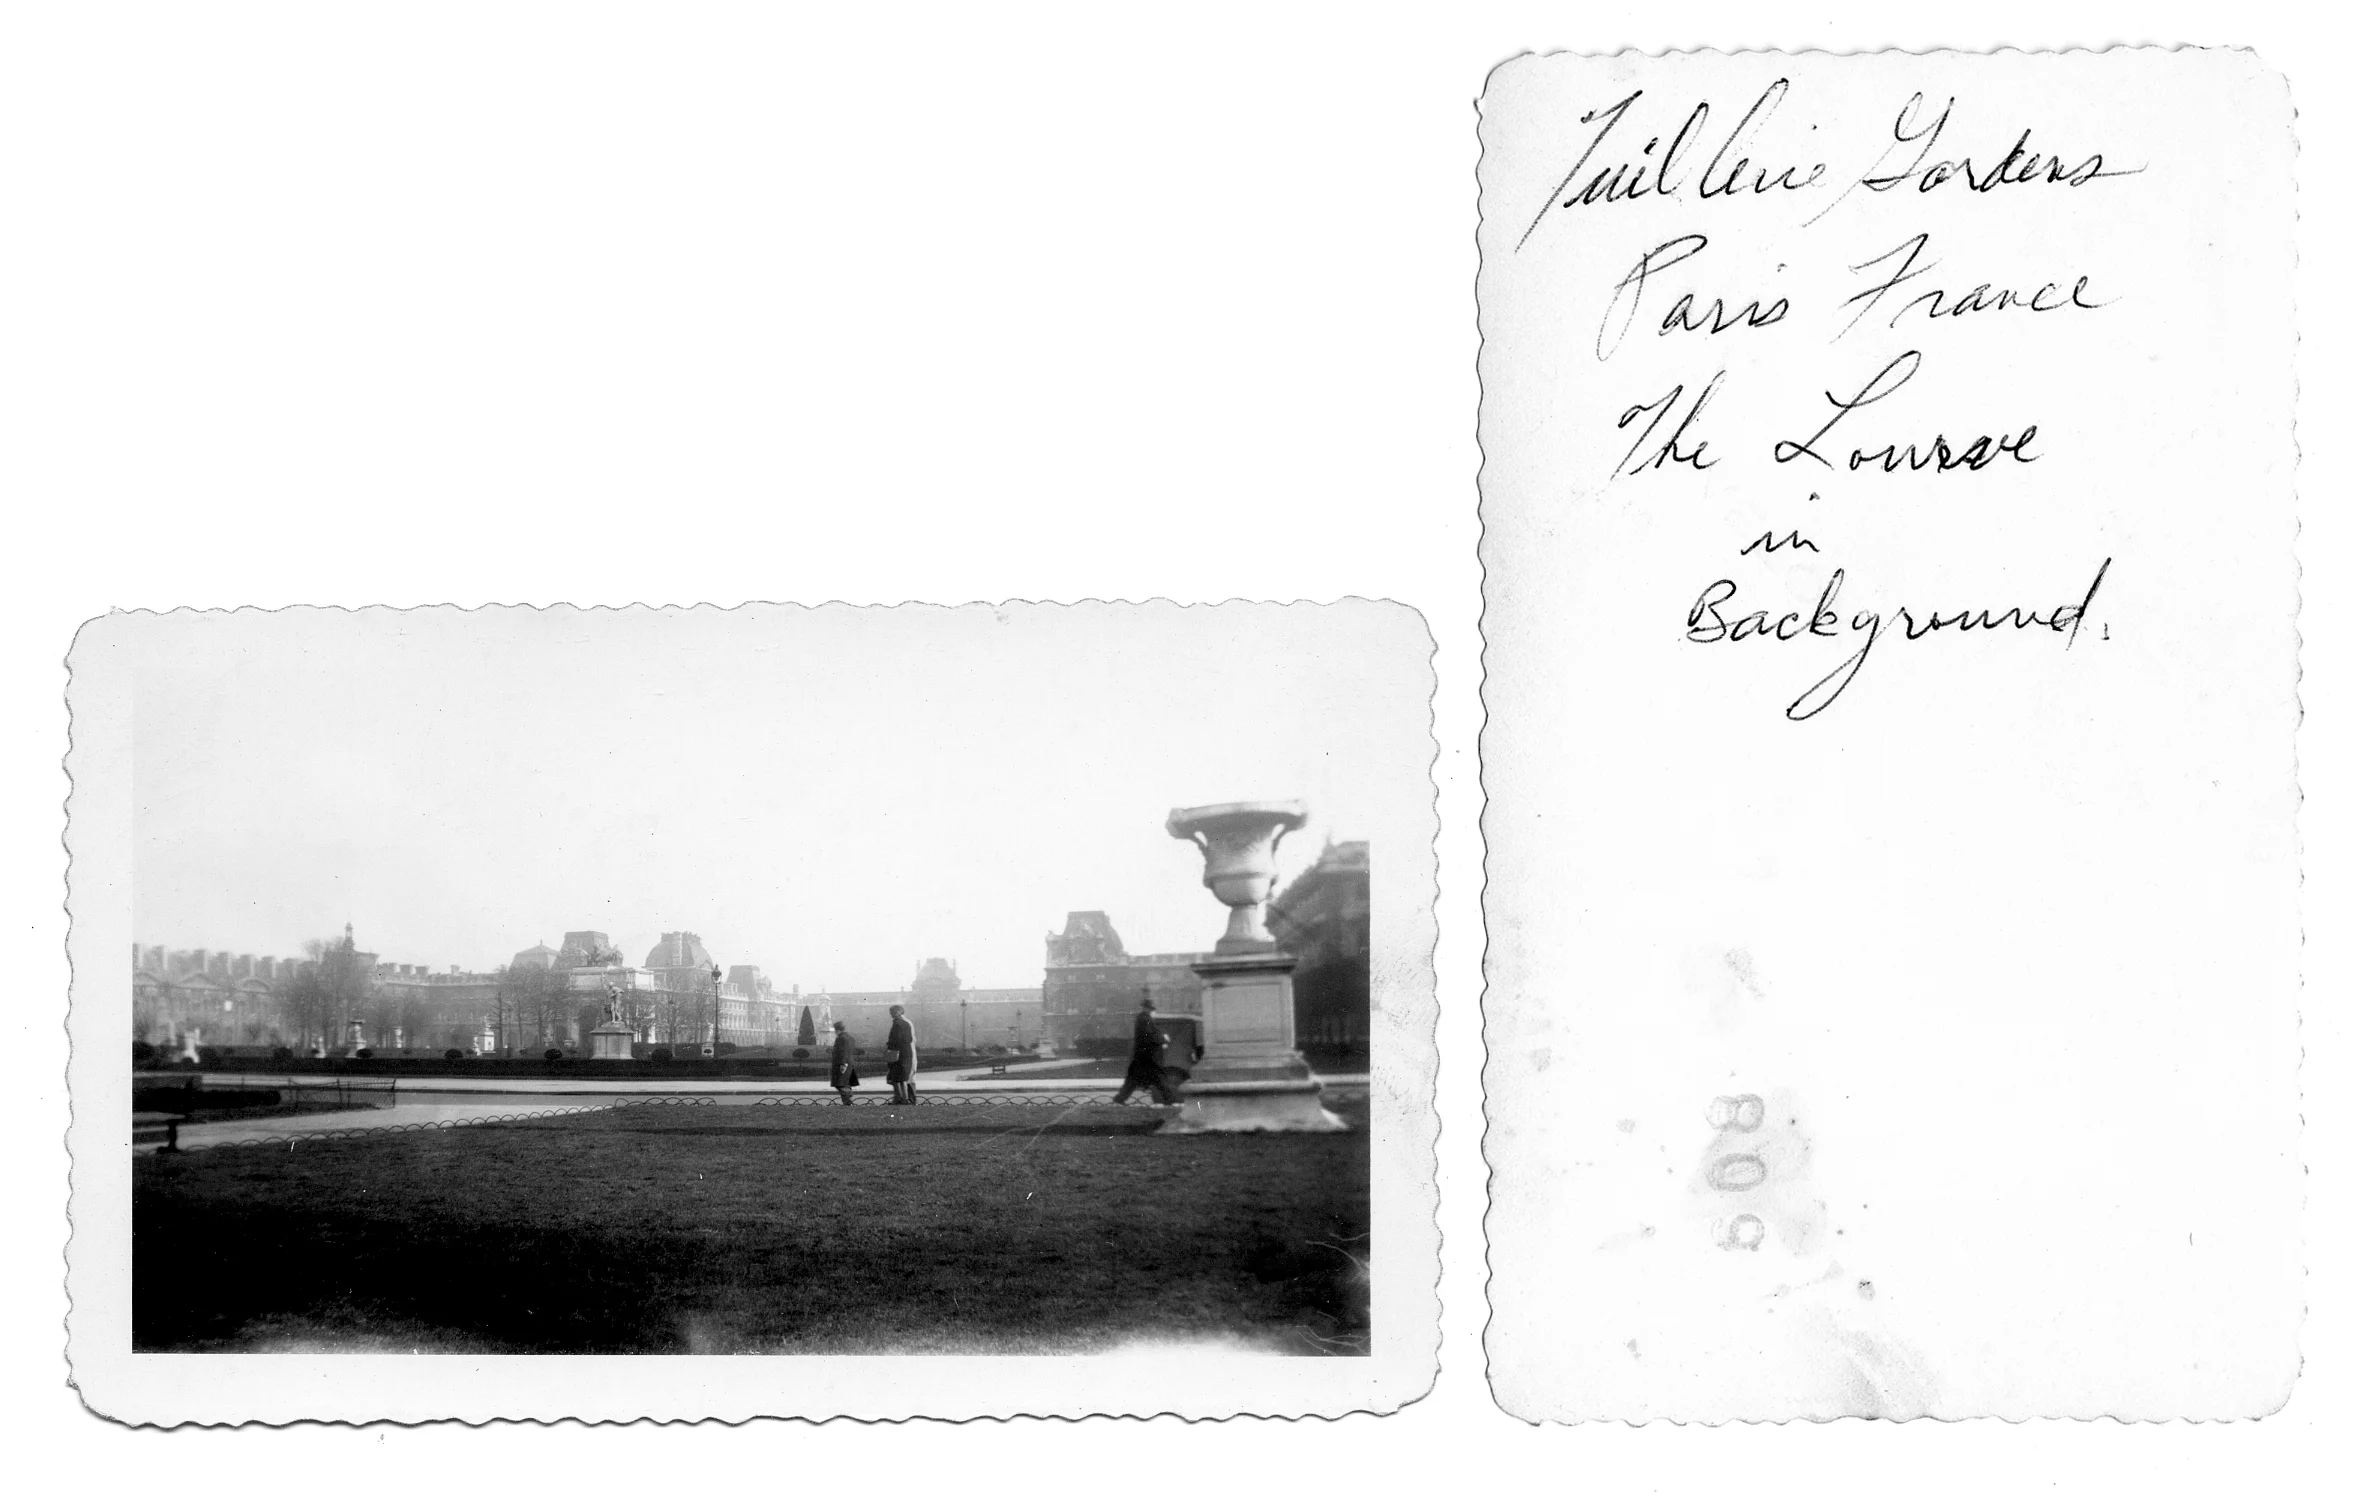 Tuillerie Gardens
Paris France
The Lourve
in
Background.
809